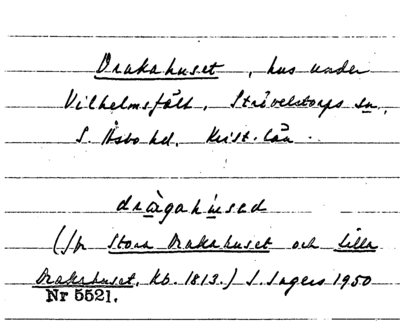 Drakahuset, hus under
Vilhelmsfält, Strövelstorps sn,
S. Åsbo hd, Krist. län.
dràgahúsed
(Jr Stora Drakahuset och Lilla
Drakahuset, kb. 1813.) I. Ingers 1950
Nr 5521.